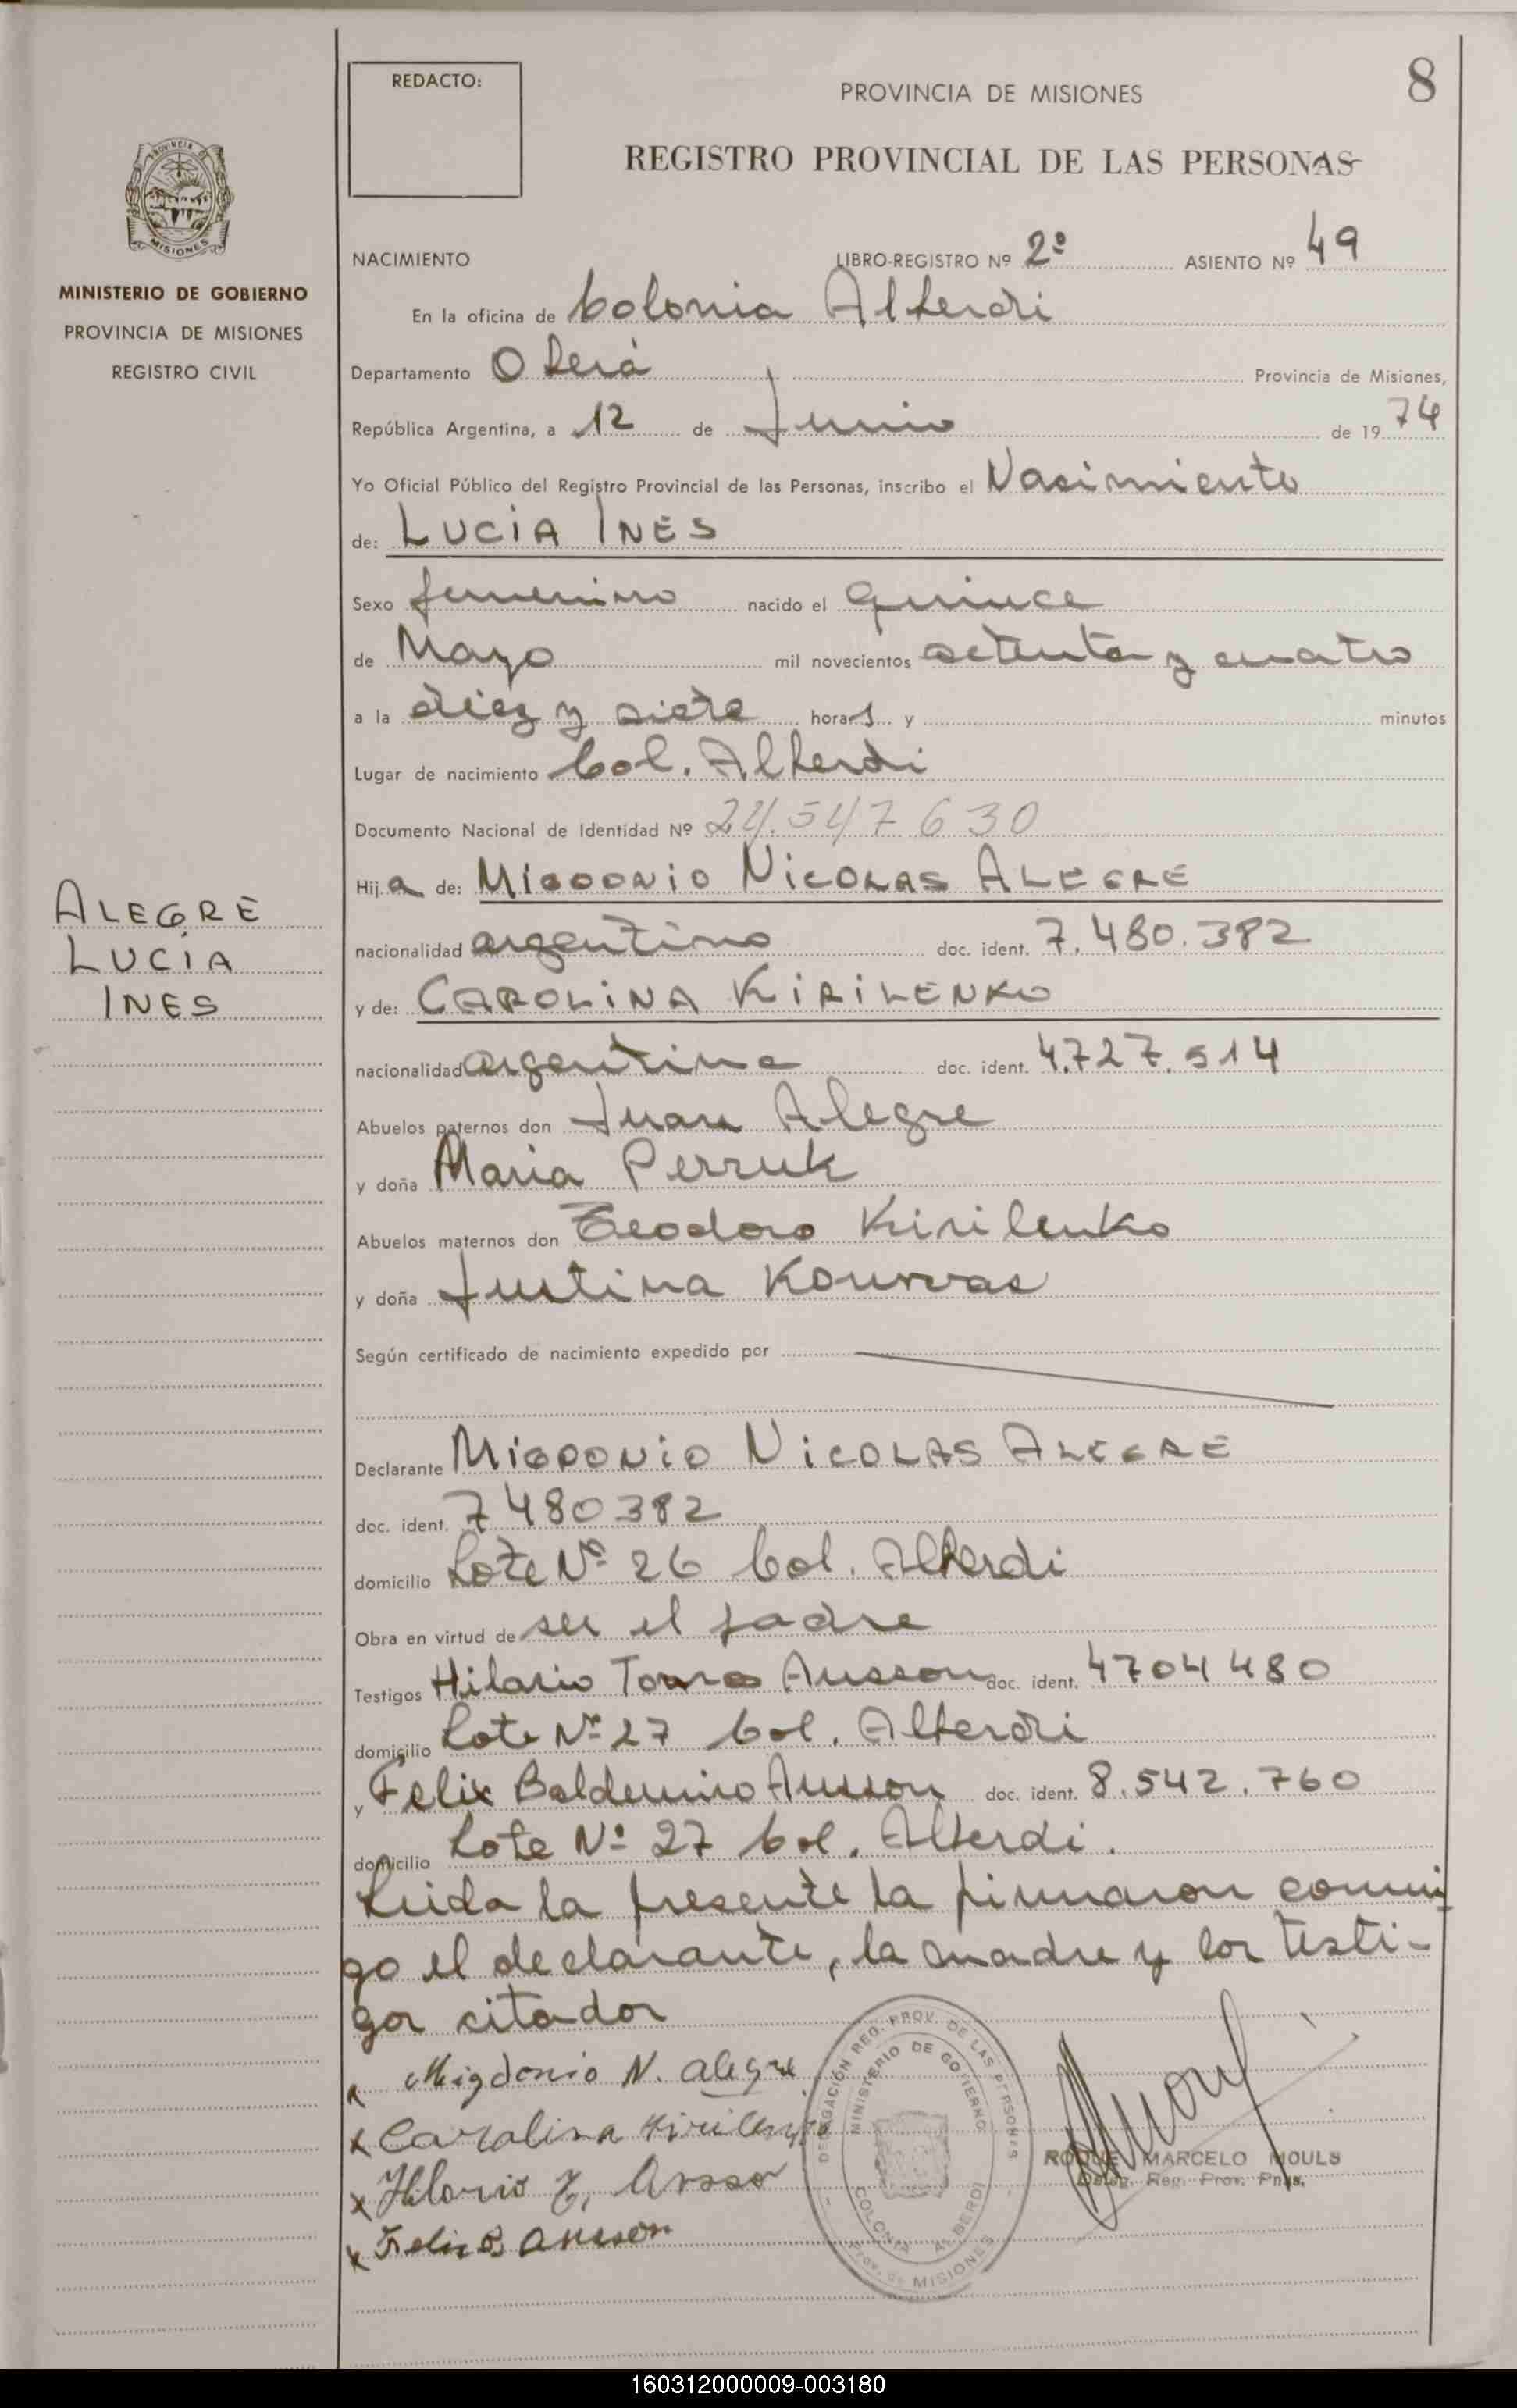 REDACTO:
PROVINCIA DE MISIONES
8
REGISTRO PROVINCIAL DE LAS PERSONAS
PROVINCIA DE
MISIONES
MINISTERIO DE GOBIERNO
PROVINCIA DE MISIONES
REGISTRO CIVIL
NACIMIENTO LIBRO-REGISTRO Nº 2º ASIENTO Nº 49
En la oficina de Colonia Alberdi
Departamento Oberá Provincia de Misiones,
República Argentina, a 12 de Junio de 1974
Yo Oficial Público del Registro Provincial de las Personas, inscribo el Nacimiento
de: LUCIA INES
Sexo femenino nacido el quince
de Mayo mil novecientos setenta y cuatro
a la diez y siete horas y minutos
Lugar de nacimiento Col. Alberdi
Documento Nacional de Identidad Nº 24.547.630
Hija de: MIGDONIO NICOLAS ALEGRE
ALEGRE
LUCIA
INES
nacionalidad argentino doc. ident. 7.480.382
y de: CAROLINA KIRILENKO
nacionalidad argentina doc. ident. 4.727.514
Abuelos paternos don Juan Alegre
y doña Maria Perruk
Abuelos maternos don Teodoro Kirilenko
y doña Justina
Según certificado de nacimiento expedido por
Declarante MIGDONIO NICOLAS ALEGRE
doc. ident. 7480382
domicilio Lote Nº 26 Col. Alberdi
Obra en virtud de ser el padre
Testigos Hilario Ausson doc. ident. 4704480
domicilio Lote Nº 27 Col. Alberdi
y Felix Baldemiro Ausson doc. ident. 8.542.760
domicilio Lote Nº 27 Col. Alberdi.
Leida la presente la firmaron conmi-
go el declarante, la madre y los testi-
gos citados
Migdonio N. Alegre
x Carolina Kirilenko
x Hilario
x Felix B. Ausson
DELEGACIÓN REG. PROV. DE LAS PERSONAS
MINISTERIO DE GOBIERNO
COLONIA ALBERDI
Prov. de MISIONES
ROQUE MARCELO MOULS
Deleg. Reg. Prov. Pnas.
160312000009-003180